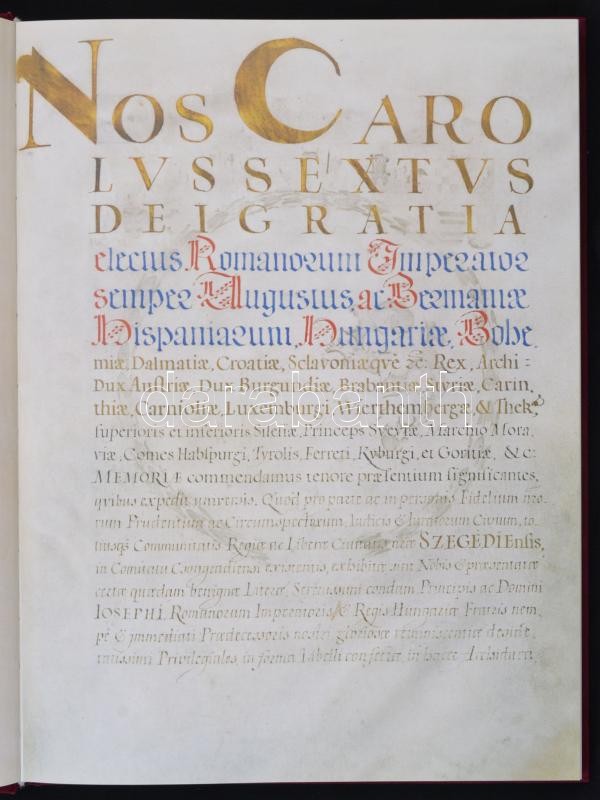 NOS CARO
LVS SEXTVS
DEI GRATIA
electus Romanorum Imperator
semper Augustus, ac Germaniæ
Hispaniarum, Hungariæ, Bohe
miæ, Dalmatiæ, Croatiæ, Sclavoniæqve &c: Rex, Archi =
Dux Austriæ, Dux Burgundiæ, Brabantiæ, Styriæ, Carin
thiæ, Carnioliæ, Luxemburgi, Wierthembergæ, & Thekæ
superioris et inferioris Silesiæ, Princeps Sveviæ, Marchio Mora
viæ, Comes Habspurgi, Tyrolis, Ferreti, Kyburgi, et Goritiæ, &c:
MEMORIÆ commendamus tenore præsentium significantes,
qvibus expedit universis. Quod pro parte ac in personis Fidelium no
rum Prudentium ac Circumspectorum, Iudicis & Iuratorum Civium, to
tiusq3 Communitatis Regiæ ac Liberæ Civitatis SZEGEDIEnsis,
in Comitatu Csongradiensi existentis, exhibitæ sunt Nobis & præsentatæ
certæ quædam benignæ Literæ, Serenissimi condam Principis ac Domini
IOSEPHI, Romanorum Imperatoris, & Regis Hungariæ Fratris nem
pè & immediati Prædecessoris nostri gloriosæ reminiscentiæ
Privilegiales, in forma Libelli confectæ, in
darabanth